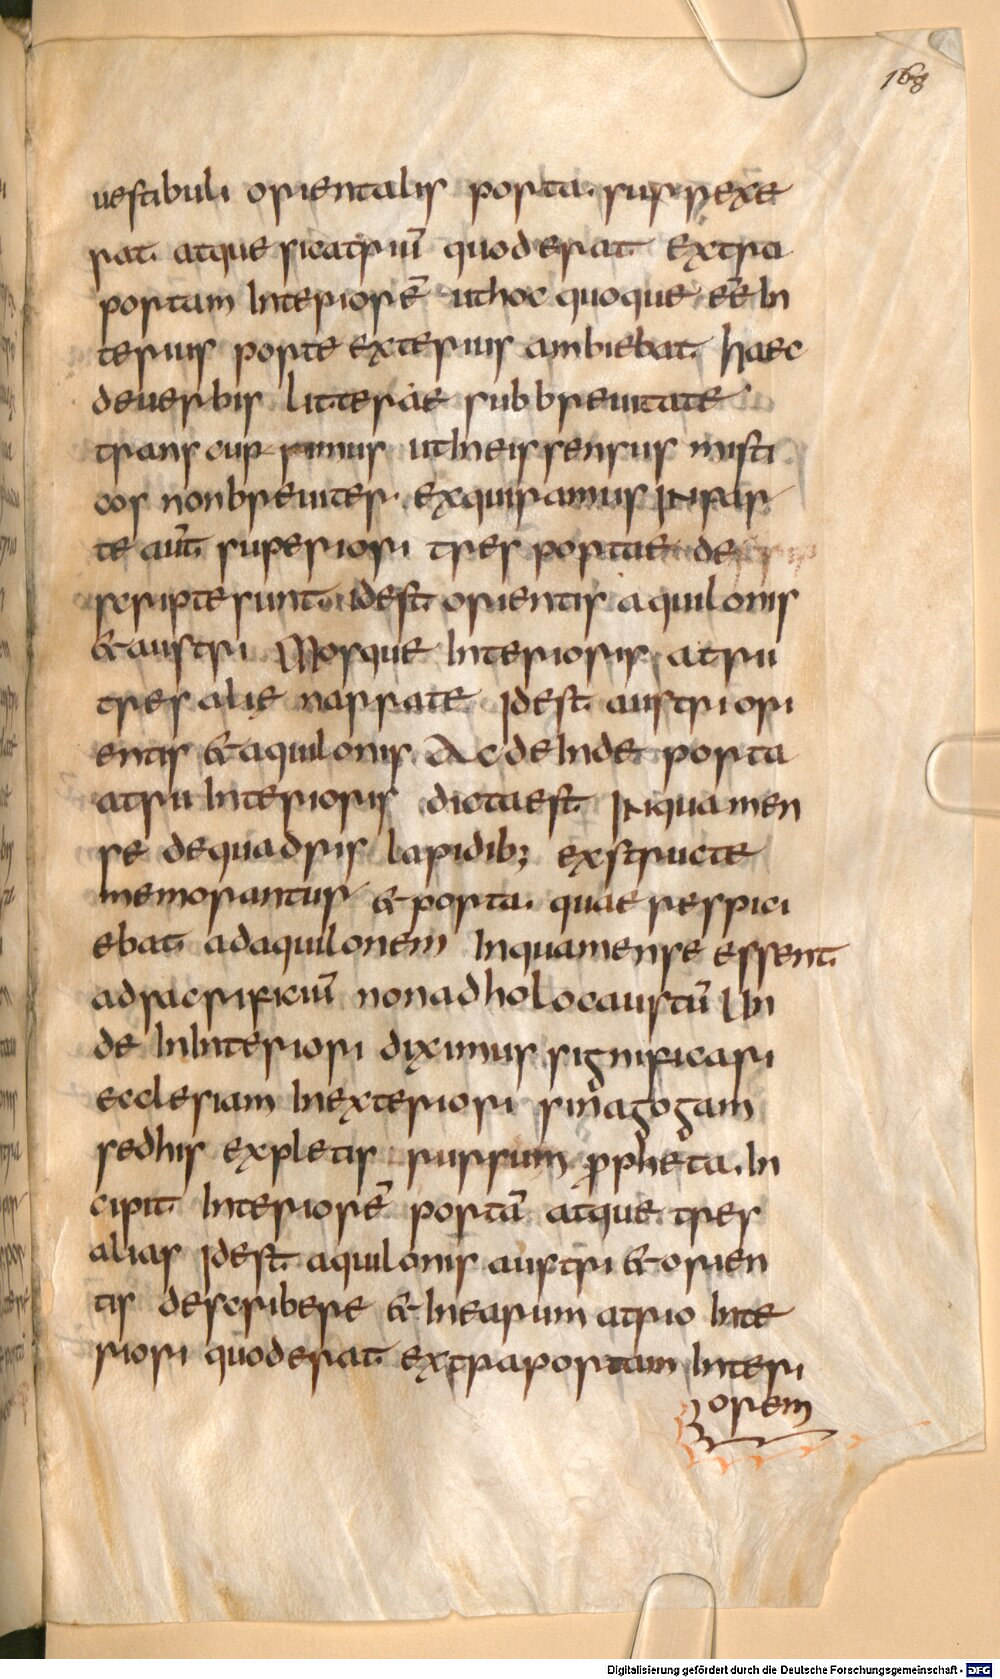 168
uestibuli orientalis porta. surrexe
rat. atque sicatriū quod erat extra
portam Interiorē ut hoc quoque eēt In
terius porte exterius ambiebat. haec
deuerbis litterae sub breuitate
transcurrimus utIneis sensus misti
cos non breuiter. exquiramus Inpar
te aut̄ superiori tres portae de
scripte sunt. idest orientis aquilonis
& austri Morque Interioris atrii
tres alie narrate Idest. austri ori
entis & aquilonis Ac deInde porta
atrii Interioris dicta est. In qua men
se de quadris lapidib; exstructe
memorantur & porta. quae respici
ebat. ad aquilonem In qua mense essent.
ad sacrificiū non ad holocaustū Un
de InInteriori diximus significari
ecclesiam In exteriori sinagogam
sed his expletis rursum propheta. In
cipit Interiorē portā atque tres
alias Idest. aquilonis austri & orien
tis describere & In earum atrio Inte
riori quod erat extra portam Interi
orem
Digitalisierung gefördert durch die Deutsche Forschungsgemeinschaft - DFG